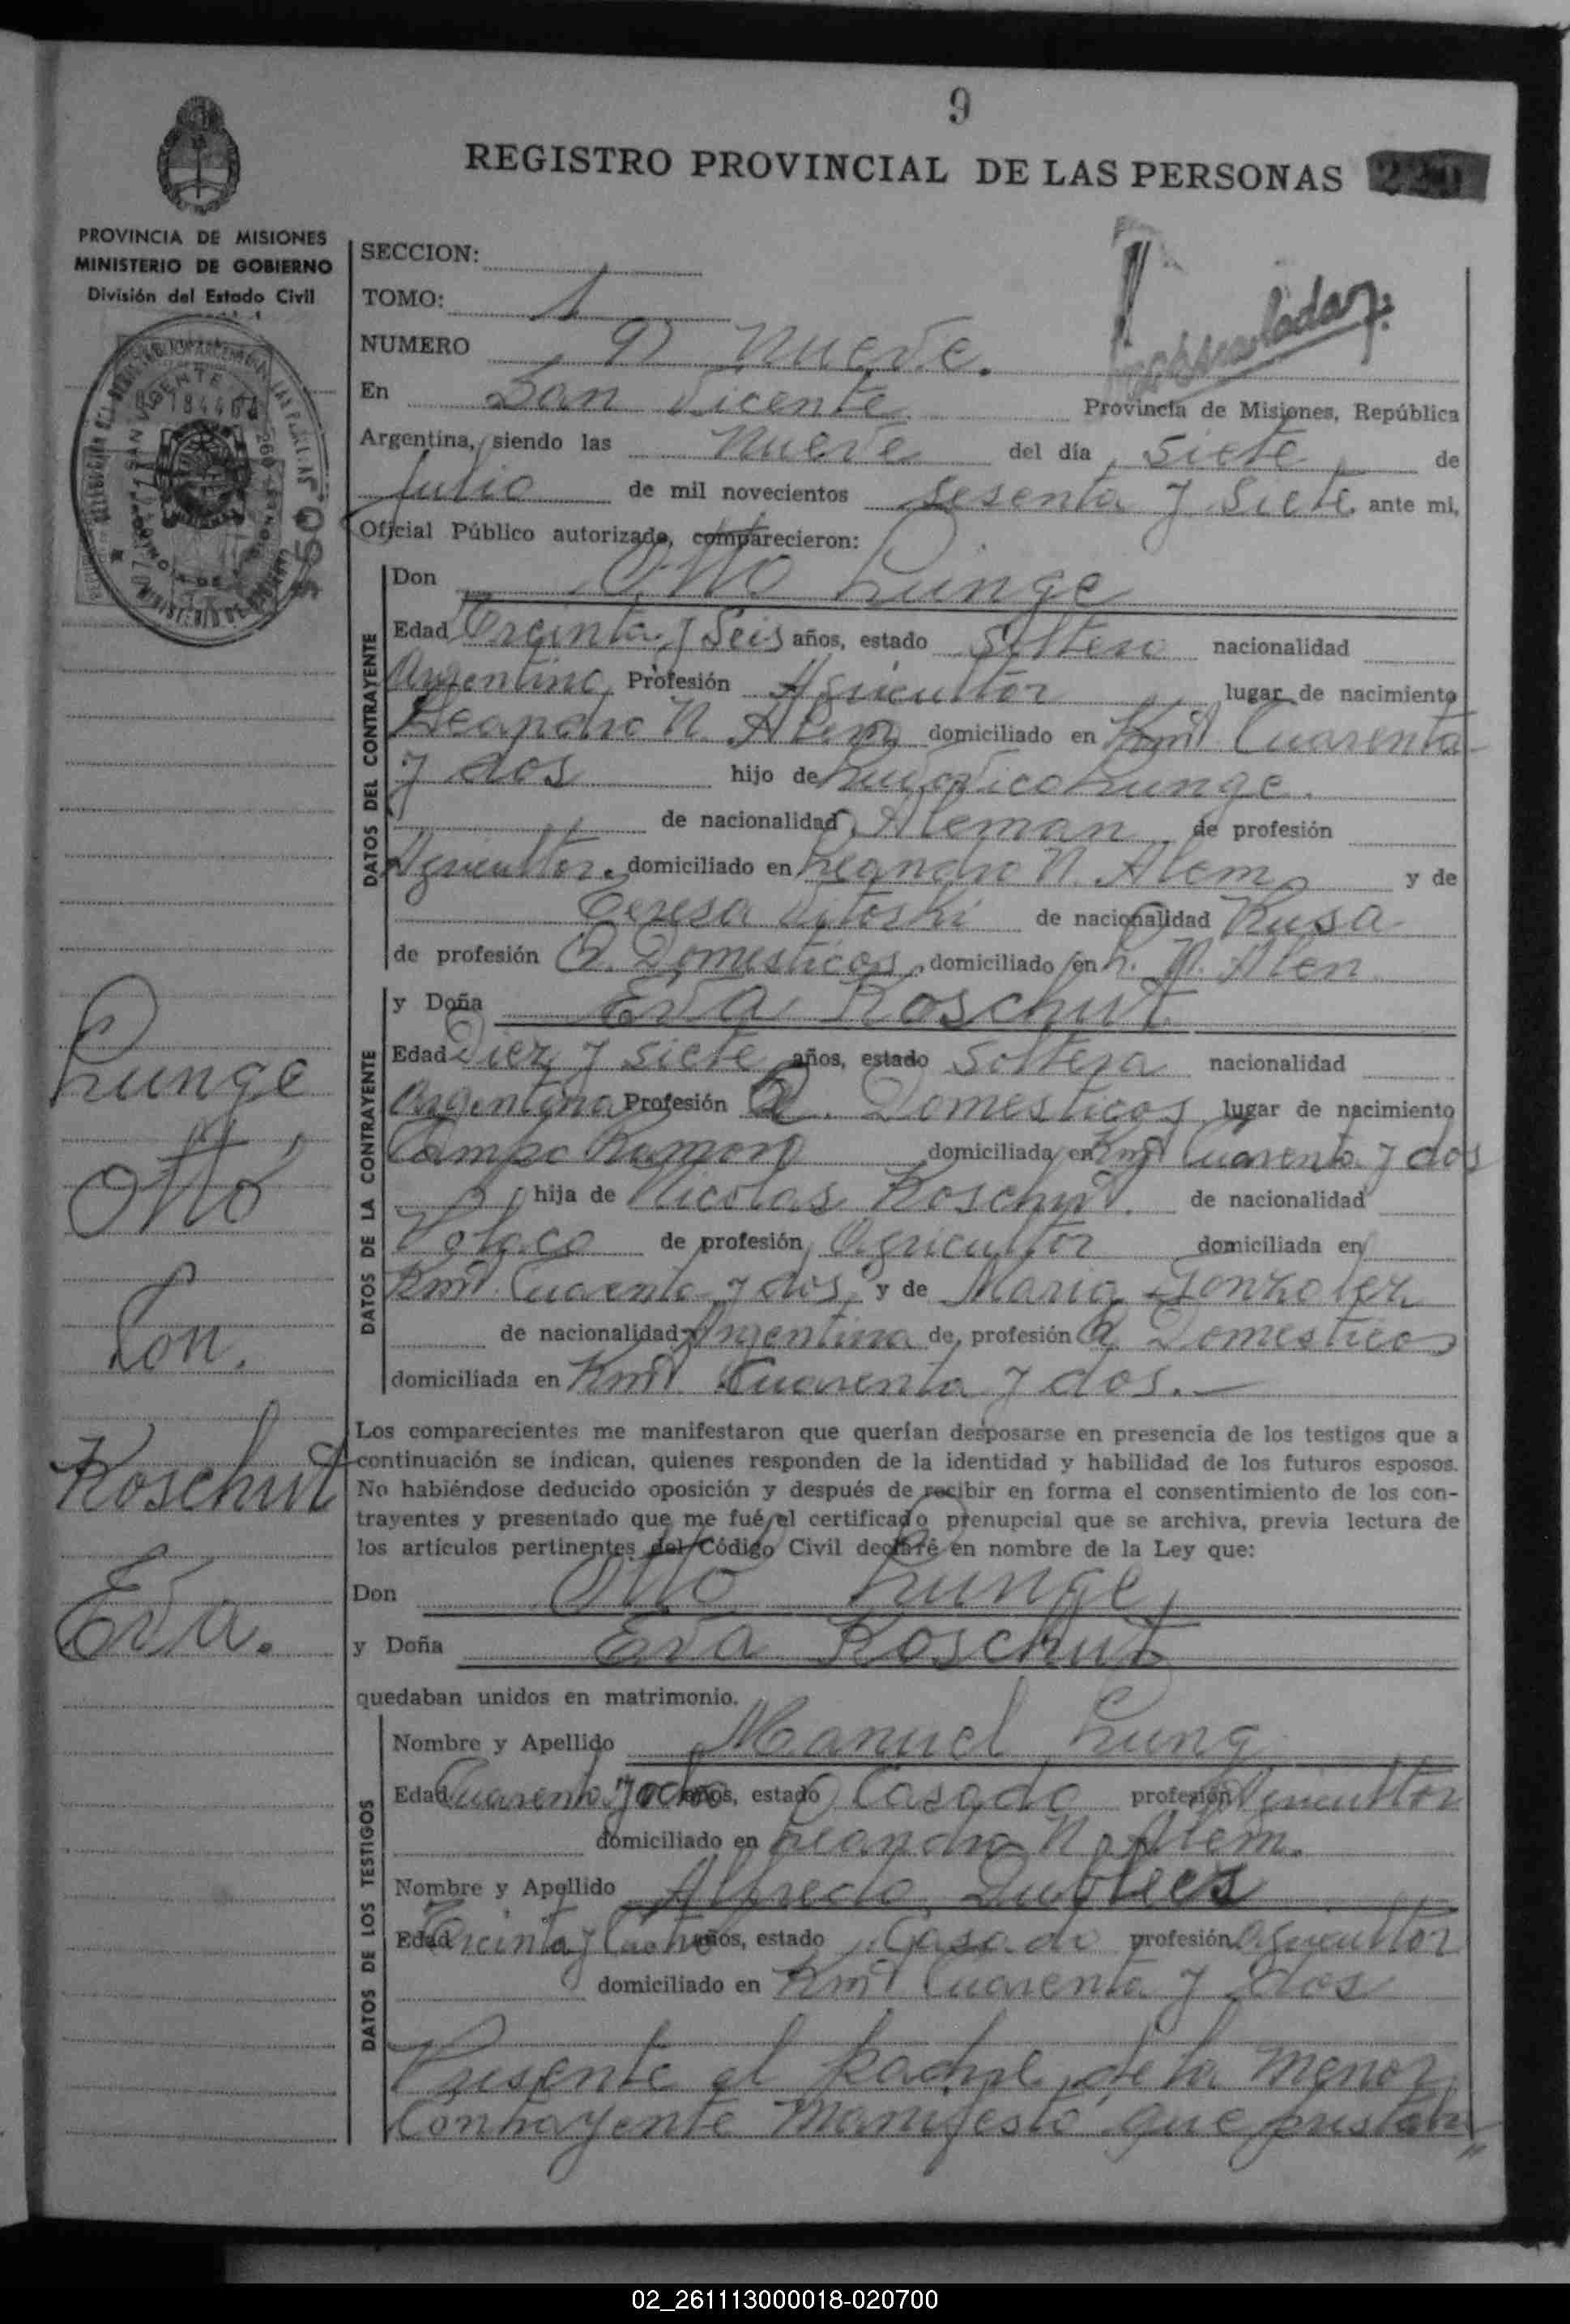 9
REGISTRO PROVINCIAL DE LAS PERSONAS 220
PROVINCIA DE MISIONES
MINISTERIO DE GOBIERNO
División del Estado Civil
SECCION:
TOMO: 1
NUMERO 9 Nueve.
En San Vicente Provincia de Misiones, República
Argentina, siendo las Nueve del día Siete de
Julio de mil novecientos Sesenta y Siete ante mi,
Oficial Público autorizado, comparecieron:
DATOS DEL CONTRAYENTE
Don Otto Lunge
Edad Treinta y Seis años, estado Soltero nacionalidad
Argentino Profesión Agricultor lugar de nacimiento
Leandro N. Alem domiciliado en Kmt Cuarenta
y dos hijo de Ludovico Lunge.
de nacionalidad Aleman de profesión
Agricultor. domiciliado en Leandro N. Alem y de
Teresa de nacionalidad Rusa
de profesión Q. Domesticos, domiciliado en L. N. Alen
DATOS DE LA CONTRAYENTE
y Doña Eva Koschut
Edad Diez y siete años, estado Soltera nacionalidad
Argentina Profesión Q. Domesticos lugar de nacimiento
Campo Ramon domiciliada en Kmt Cuarenta y dos
hija de Nicolas Koschut. de nacionalidad
Polaco de profesión Agricultor domiciliada en
Kmt. Cuarenta y dos, y de Maria Gonzalez
de nacionalidad Argentina de profesión Q Domesticos
domiciliada en Kmt. Cuarenta y dos.
Los comparecientes me manifestaron que querían desposarse en presencia de los testigos que a
continuación se indican, quienes responden de la identidad y habilidad de los futuros esposos.
No habiéndose deducido oposición y después de recibir en forma el consentimiento de los con-
trayentes y presentado que me fué el certificado prenupcial que se archiva, previa lectura de
los artículos pertinentes del Código Civil declaré en nombre de la Ley que:
Don Otto Lunge
y Doña Eva Koschut
quedaban unidos en matrimonio.
DATOS DE LOS TESTIGOS
Nombre y Apellido Manuel Lung
Edad Cuarenta y ocho años, estado Casado profesión Agricultor
domiciliado en Leandro N. Alem.
Nombre y Apellido Alfredo
Edad Treinta y Cuatro años, estado Casado profesión Agricultor
domiciliado en Kmt Cuarenta y dos
Presente el padre de la menor
Contrayente manifestó que
Lunge
Otto
Con.
Koschut
Eva.
02_261113000018-020700